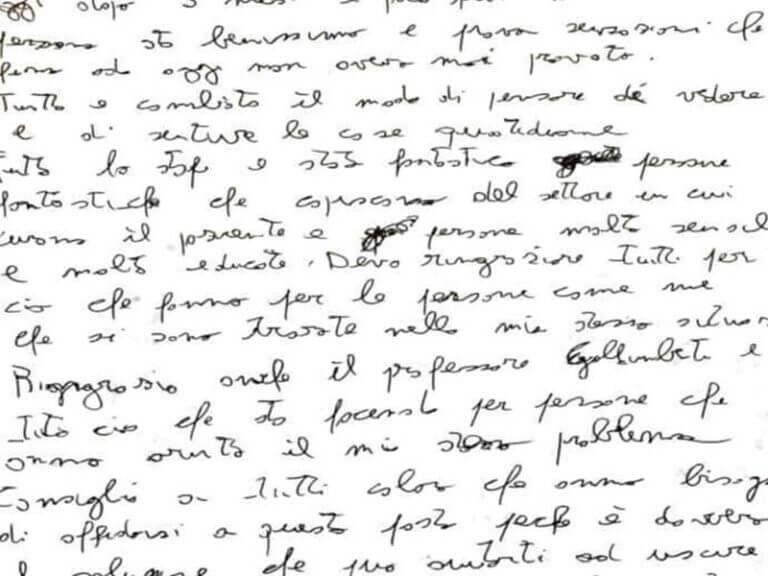 oggi dopo 3 mesi e poco
persona sto benissimo e prova sensazioni che
fino ad oggi non avevo mai provato.
Tutto e cambiato il modo di pensare di vedere
e di sentire le cose quotidiane
tutto lo staf e stato fantastico persone
fantastiche che capiscono del settore in cui
curano il paziente e persone molto
e molto educate. Devo ringraziare Tutti per
cio che fanno per le persone come me
che si sono trovate nella mia stessa
Ringrazio anche il professore e
Tutto cio che sta facendo per persone che
anno avuto il mio problema
Consiglio a Tutti coloro che anno
di affidarsi a questo posto perche è davvero
che puo aiutarti ad uscire